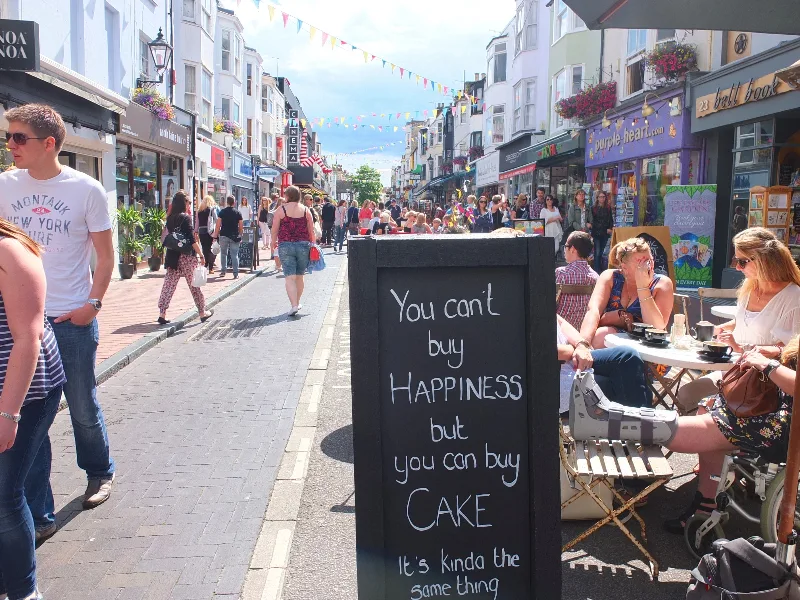 NOA
NOA
CINEMA
MONTAUK
NEW YORK
EMPIRE
purple heart.com
23 bell book
You can't
buy
HAPPINESS
but
you can buy
CAKE
It's kinda the
same thing